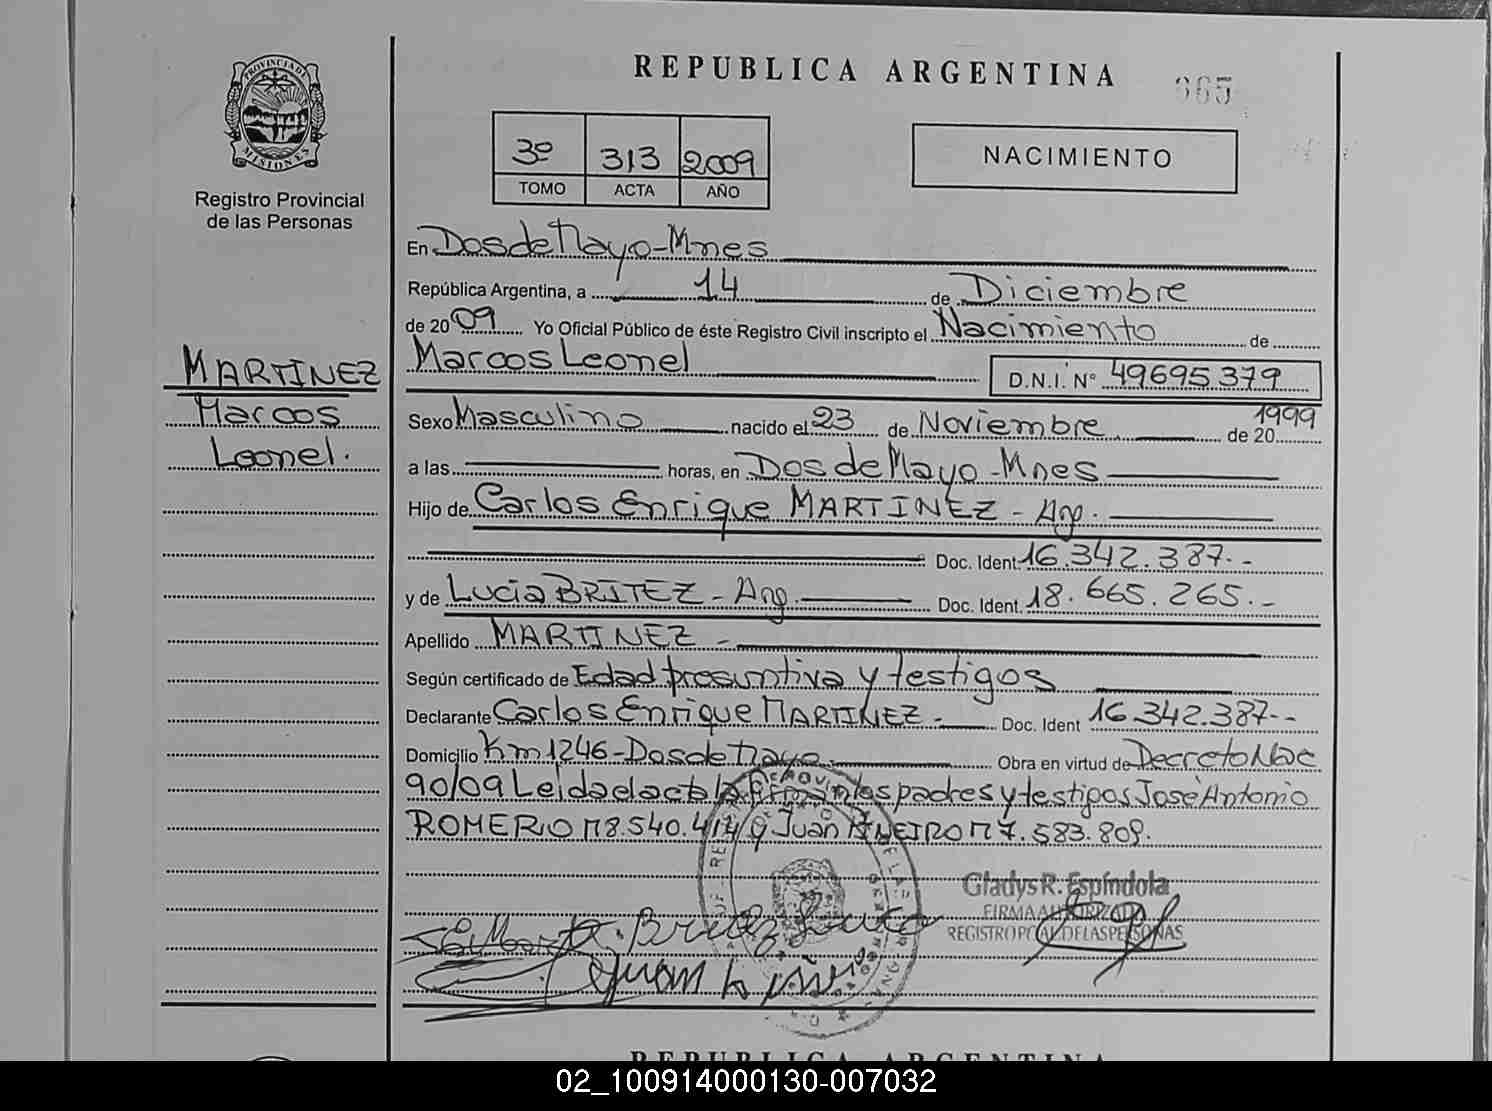 REPUBLICA ARGENTINA
365
PROVINCIA DE MISIONES
Registro Provincial
de las Personas
3º 313 2009
TOMO ACTA AÑO
NACIMIENTO
En Dos de Mayo - Mnes
República Argentina, a 14 de Diciembre
de 2009 Yo Oficial Público de éste Registro Civil inscripto el Nacimiento de
Marcos Leonel D.N.I. N° 49695379
MARTINEZ
Marcos
Leonel.
Sexo Masculino nacido el 23 de Noviembre de 20 1999
a las horas, en Dos de Mayo - Mnes
Hijo de Carlos Enrique MARTINEZ - Arg.
Doc. Ident 16.342.387.-
y de Lucia BRITEZ - Arg. Doc. Ident. 18.665.265.-
Apellido MARTINEZ -
Según certificado de Edad presuntiva y testigos
Declarante Carlos Enrique MARTINEZ - Doc. Ident 16.342.387.-
Domicilio Km 1246 - Dos de Mayo. Obra en virtud de Decreto Nac
90/09 Leida el acta la firman los padres y testigos José Antonio
ROMERO M 8.540.414 y Juan PIÑEIRO M 7.583.809.
Gladys R. Espíndola
FIRMA AUTORIZADA
REGISTRO PCIAL DE LAS PERSONAS
Britez Lucia
Juan
REPUBLICA ARGENTINA
02_100914000130-007032